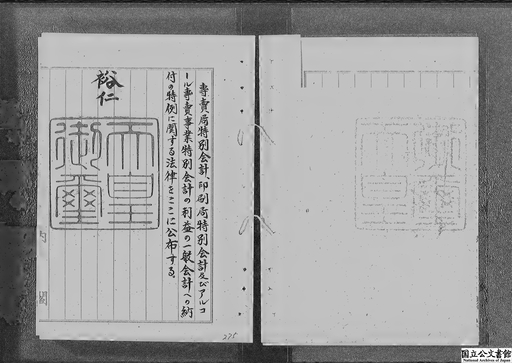 専賣局特別会計、印刷局特別会計及びアルコ
ール専賣事業特別会計の利益の一般会計への納
付の特例に関する法律をここに公布する。
裕仁
天皇
御璽
内閣
275
国立公文書館
National Archives of Japan